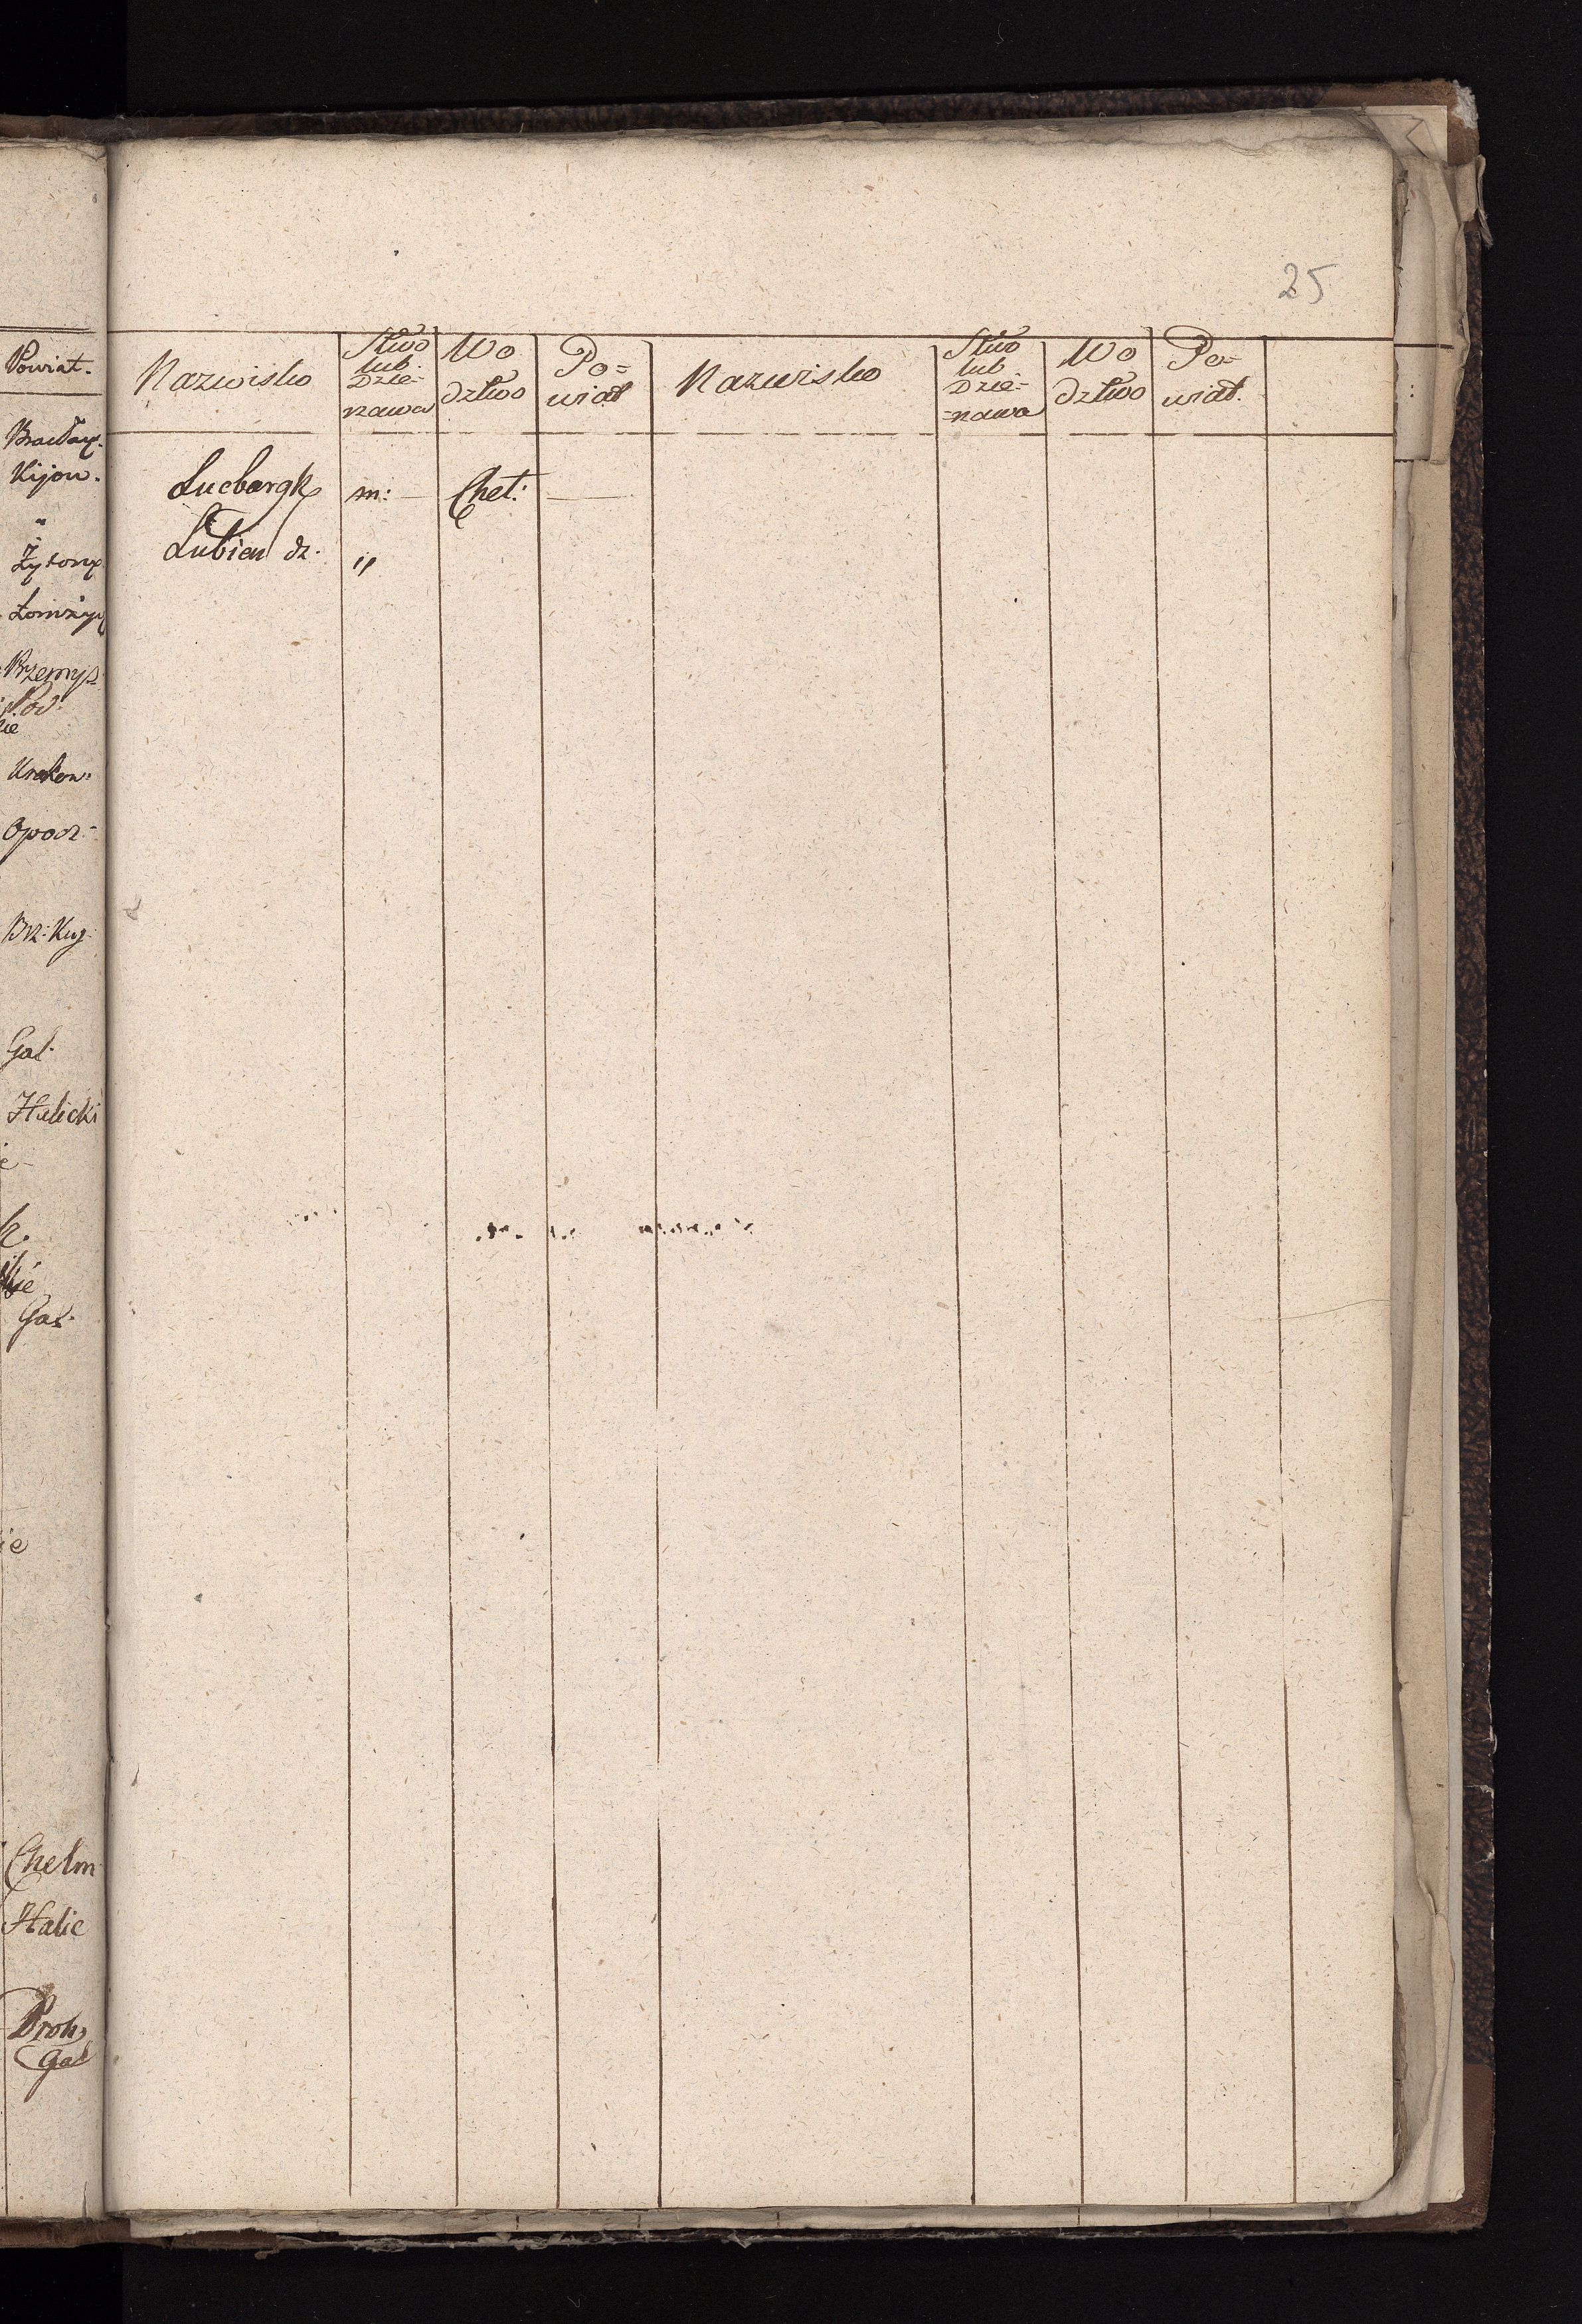 25
Powiat.
Bracław.
Kijow.
"
Żytom
Łomży
Przemys
Pod.
Krakow:
Opocz
Brz: Kuj
Gal.
Halicki
Gal.
Chelm
Halic
Proh,
Gal
Nazwisko
Stwo
lub
Dzie-
rzawa
Wo
dztwo
Po=
wiat
Nazwisko
Stwo
lub
Dzie=
=rzawa
Wo
dztwo
Po=
wiat.
m: — Cheł: —
Łubien dz. "